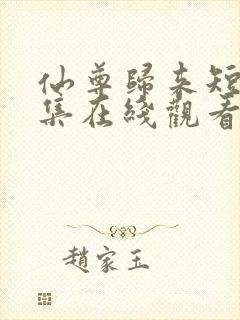 仙尊歸來短
集在綫觀看
趙家玉